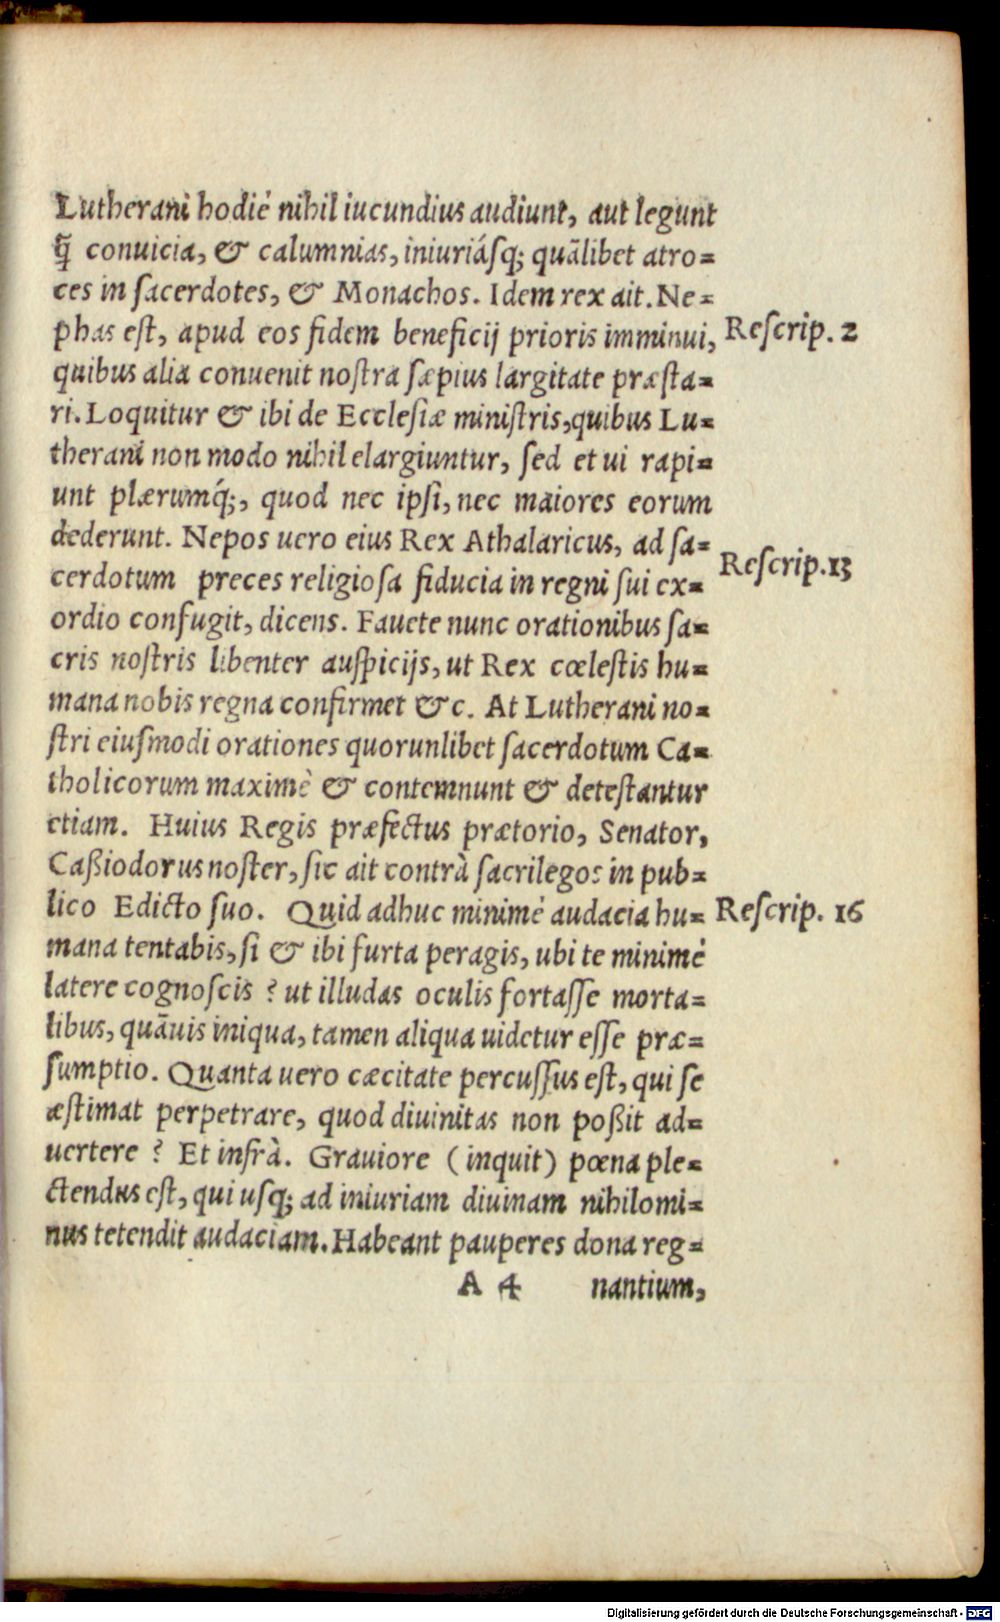 Lutherani hodiè nihil iucundius audiunt, aut legunt
q̃ conuicia, & calumnias, iniuriásq; quãlibet atro=
ces in sacerdotes, & Monachos. Idem rex ait. Ne=
phas est, apud eos fidem beneficij prioris imminui,
Rescrip. 2
quibus alia conuenit nostra sæpius largitate præsta=
ri. Loquitur & ibi de Ecclesiæ ministris, quibus Lu=
therani non modo nihil elargiuntur, sed et ui rapi=
unt plærumq́;, quod nec ipsi, nec maiores eorum
dederunt. Nepos uero eius Rex Athalaricus, ad sa=
Rescrip. 13
cerdotum preces religiosa fiducia in regni sui ex=
ordio confugit, dicens. Fauete nunc orationibus sa=
cris nostris libenter auspicijs, ut Rex cœlestis hu=
mana nobis regna confirmet &c. At Lutherani no=
stri eiusmodi orationes quorunlibet sacerdotum Ca=
tholicorum maximè & contemnunt & detestantur
etiam. Huius Regis præfectus prætorio, Senator,
Caßiodorus noster, sic ait contrà sacrilegos in pub=
lico Edicto suo. Quid adhuc minimè audacia hu=
Rescrip. 16
mana tentabis, si & ibi furta peragis, ubi te minimè
latere cognoscis? ut illudas oculis fortasse morta=
libus, quãuis iniqua, tamen aliqua uidetur esse præ=
sumptio. Quanta uero cæcitate percussus est, qui se
æstimat perpetrare, quod diuinitas non poßit ad=
uertere? Et infrà. Grauiore (inquit) pœna ple=
ctendus est, qui usq; ad iniuriam diuinam nihilomi=
nus tetendit audaciam. Habeant pauperes dona reg=
A 4 nantium,
Digitalisierung gefördert durch die Deutsche Forschungsgemeinschaft - DFG